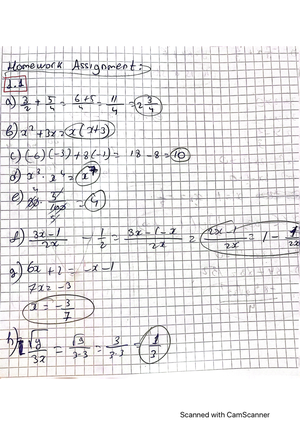 Homework Assignment:
1.1
a) 3/2 + 5/4 = 6+5/4 = 11/4 = 2 3/4
b) x² + 3x = x(x+3)
c) (-6)(-3) + 8(-1) = 18 - 8 = 10
d) x³ · x⁴ = x⁷
e) = 4
f) 3x-1/2x - 1/2 = 3x-1-x/2x = 2x-1/2x = 1 - 1/2x
g) 6x + 2 = -x - 1
7x = -3
x = -3/7
h) √9/3x = √9/3·3 = 3/3·3 = 1/3
Scanned with CamScanner